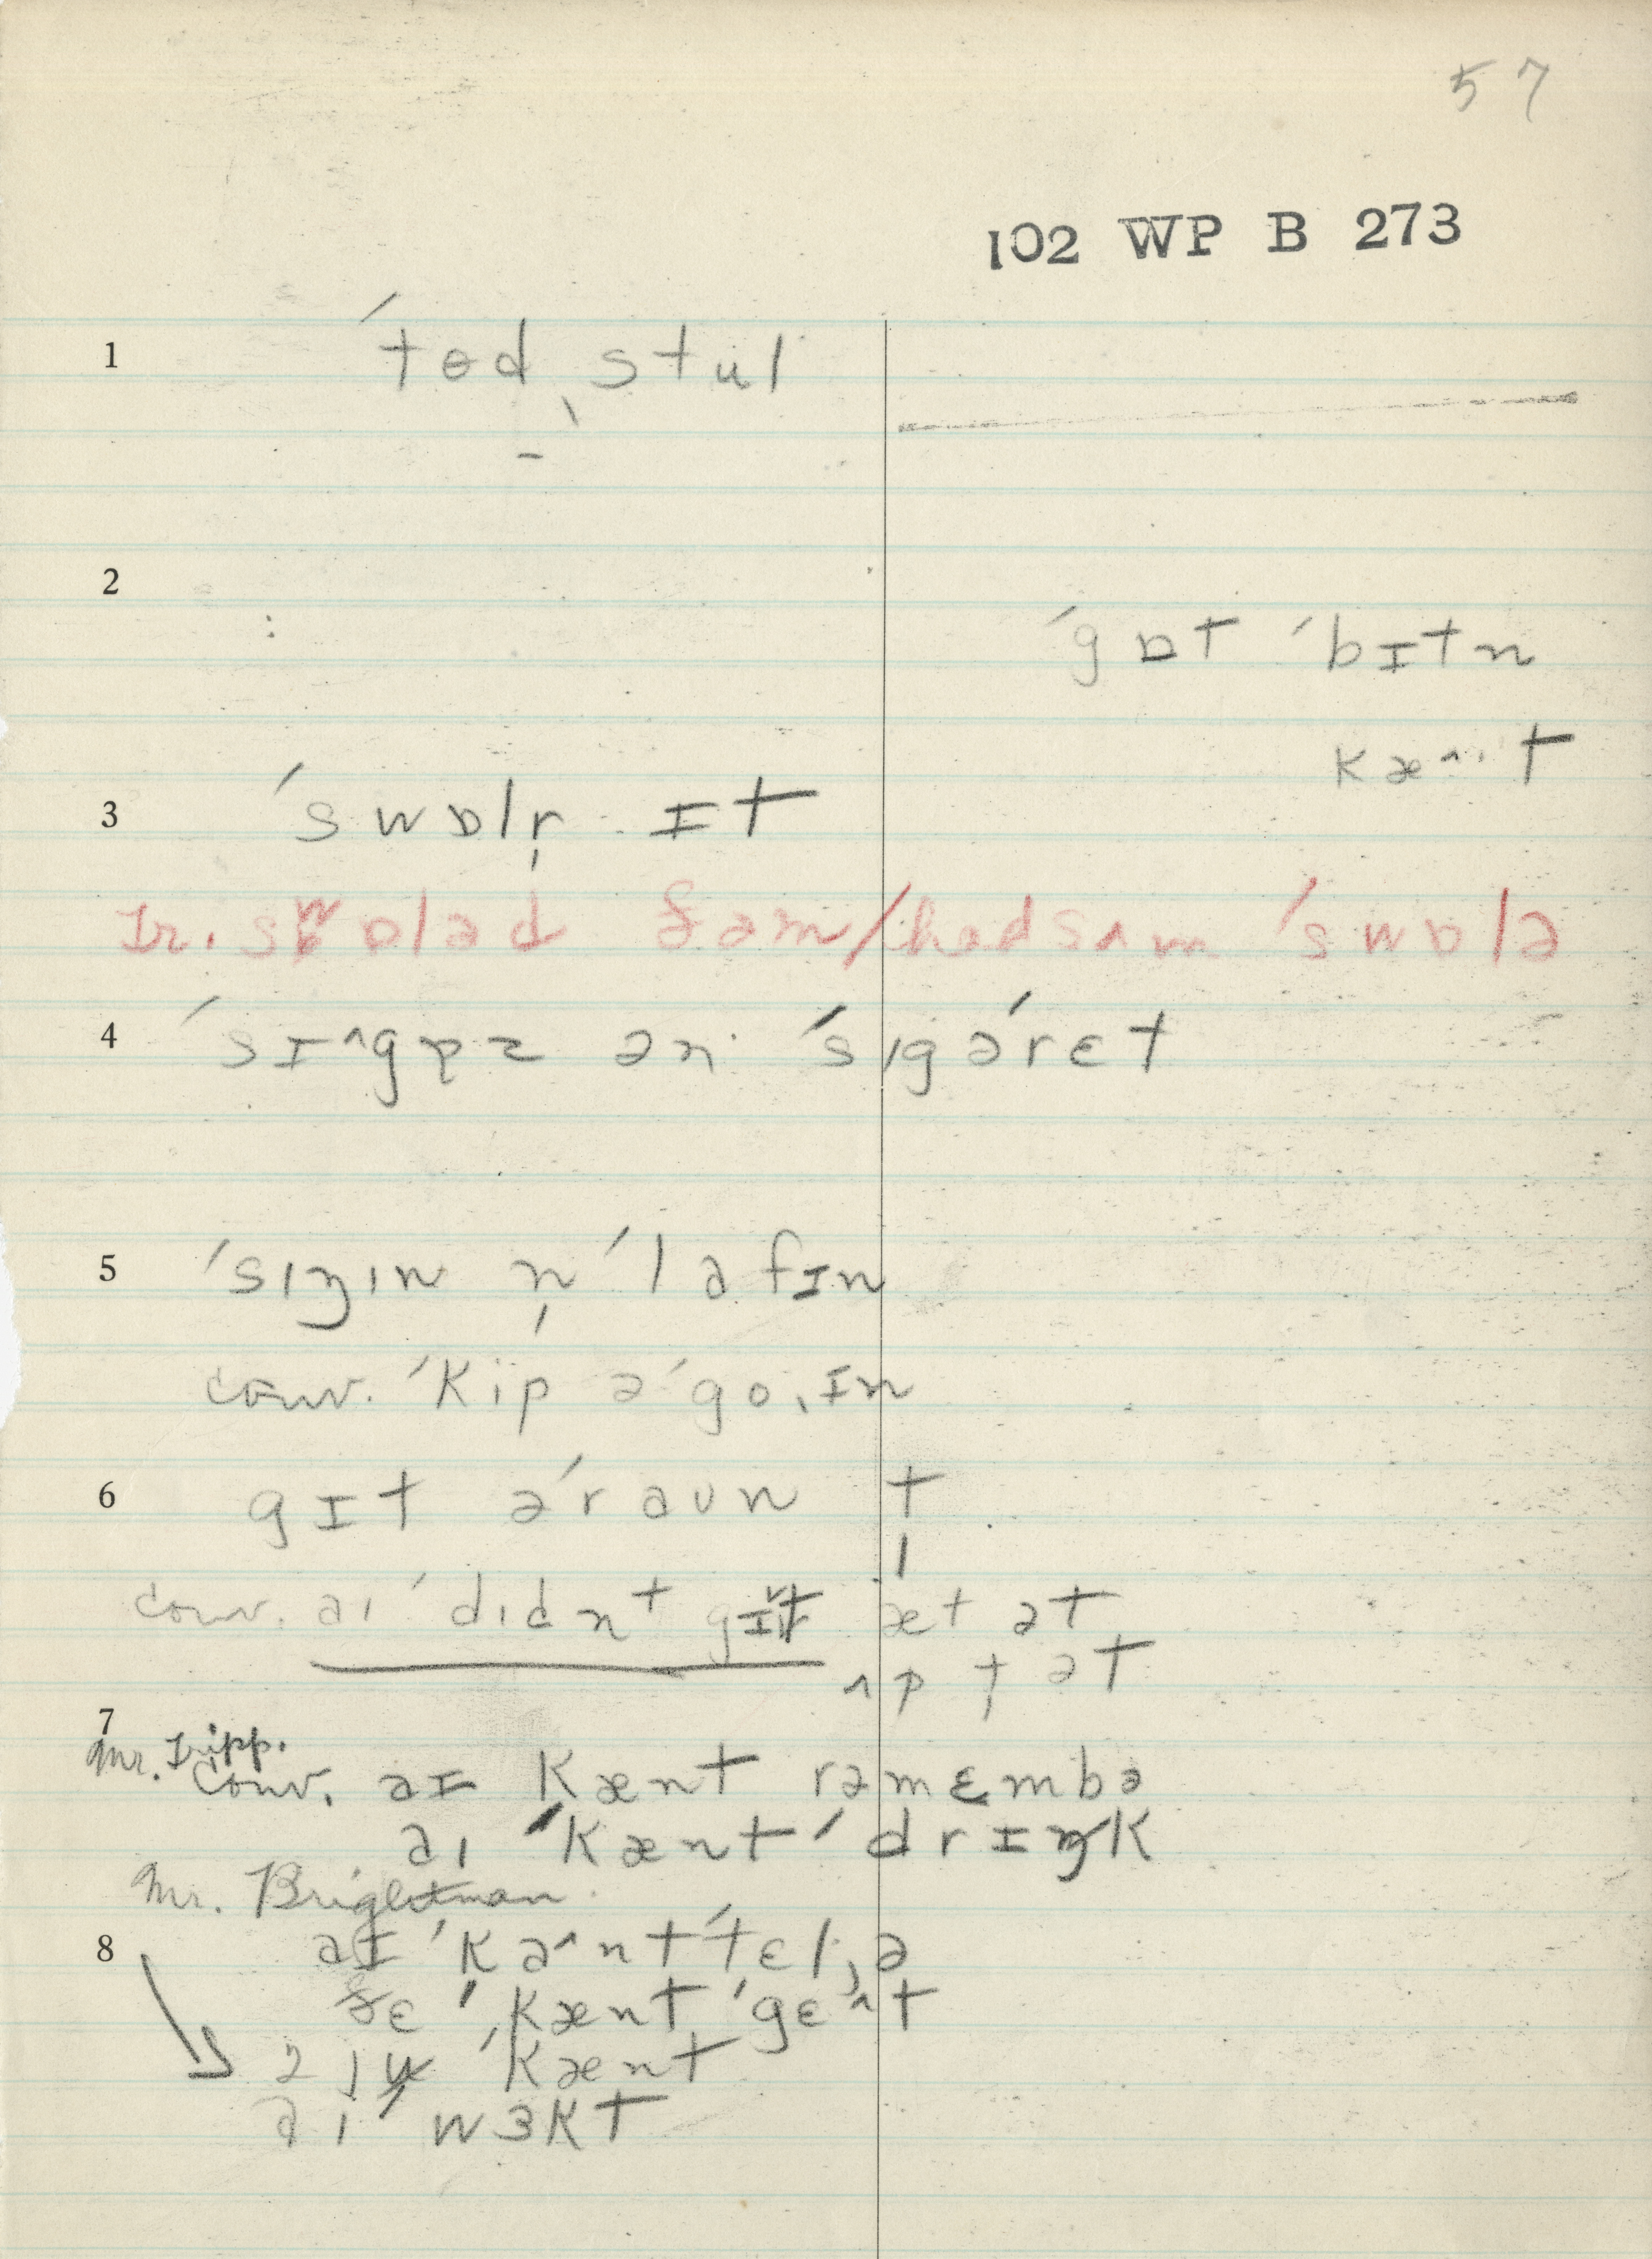 57
102 WP B 273
1 ˈtɵd ˎstul
2
ˈgɒt ˈbɪtn
kæ^t
3 ˈswɒlr̩ ɪt
Ir. swɒləd ðəm / hadsʌm ˈswɒlə
4 ˈsɪ^gpz ən ˈsɪgəˈrɛt
5 ˈsɪŋɪn n̩ ˈlafɪn
conv. ˈkip əˈgoˌɪn
6 gɪt əˈraʊn t̩
conv. aɪ ˈdɪdnt gɪt æt ət
ʌp t ət
7
Mr. Tripp.
conv. aɪ kænt rəmɛmbə
aɪ ˈkænt ˈdrɪŋk
Mr. Brightman
8 aɪ ˈka^nt ˈtɛlˌjə
ðɛ ˈkænt ˈgɛ^t
ju ˈkænt
aɪ wɜkt